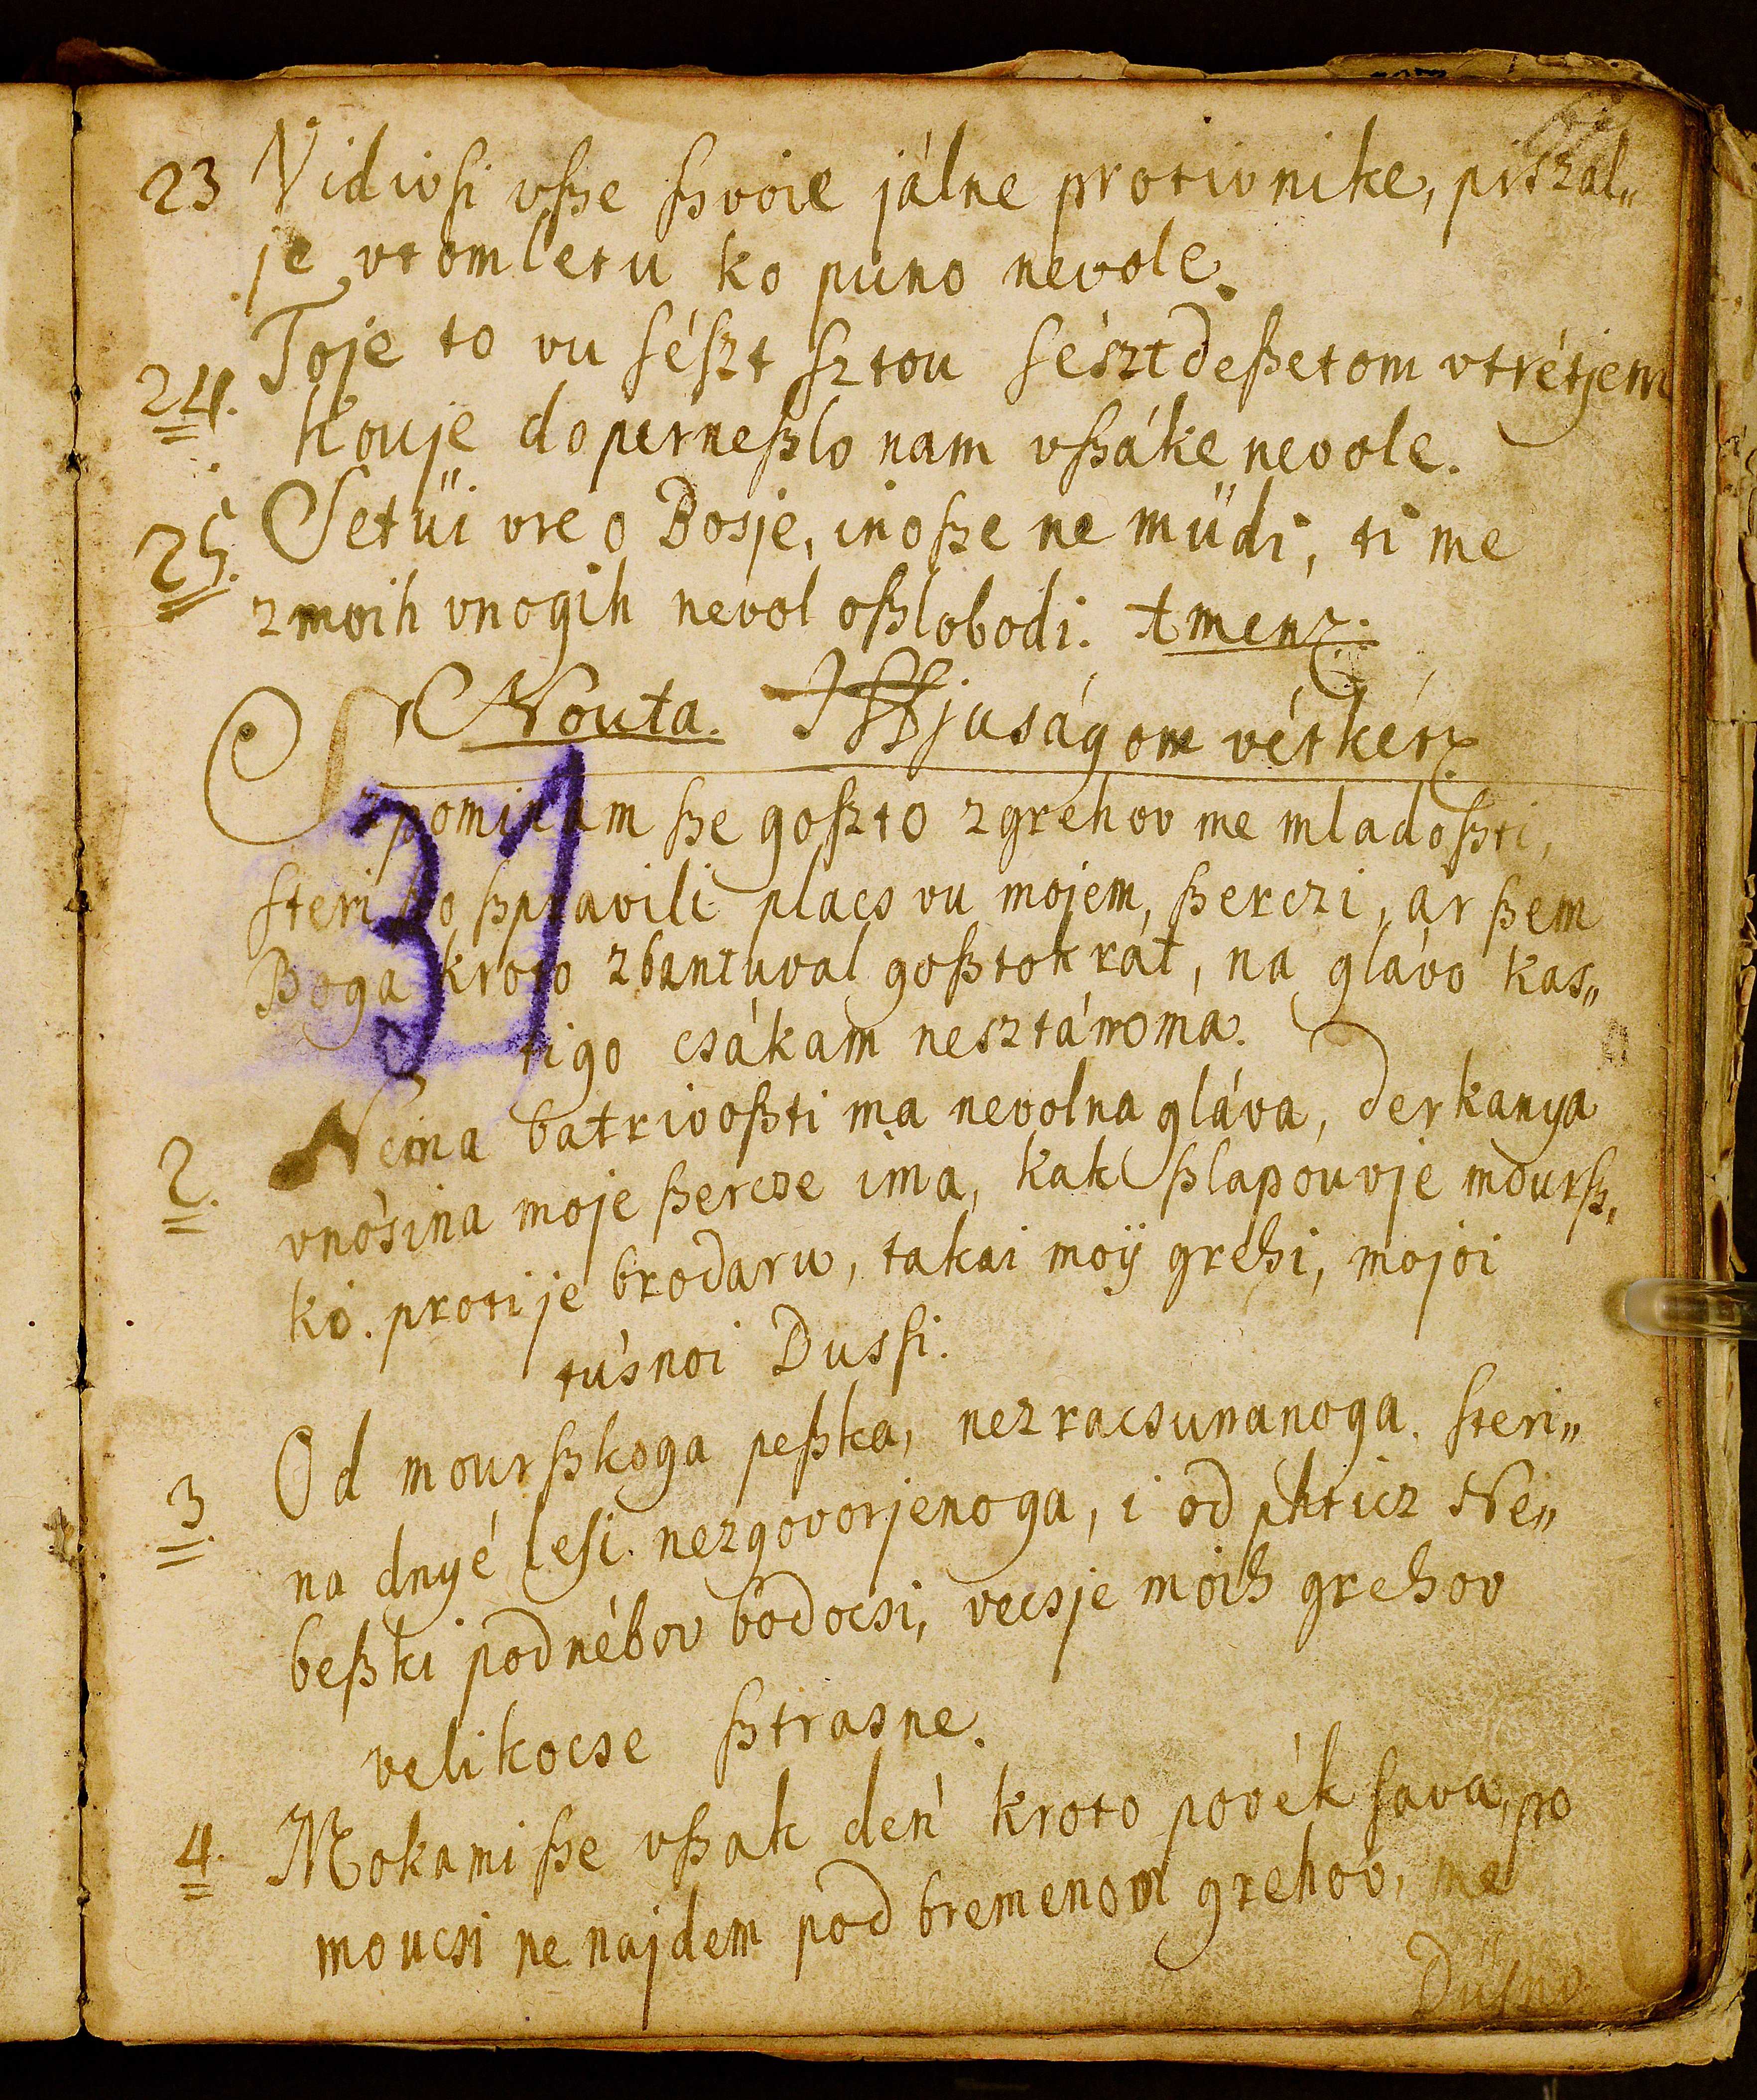 23 Vidivſi vſze ſzvoie jálne protivnike, piszal„
je vtomletu ko puno nevole.
24. Toje to vu ſéſzt ſztou ſésztdeſzetom vtrétjem
kouje doperneſzlo nam vſzáke nevole.
25. Setüi vre o Bosje, inoſze ne müdi, ti me
zmoih vnogih nevol oſzlobodi. Amen
Nouta. Iffjuságom vétkét
Szpominam ſze goſzto zgrehov me mladoſzti,
ſteri ſzo ſzpravili placs vu mojem, ſzerczi, ar ſzem
Boga kroto zbantuval goſztokrát, na glávo kas„
31
tigo csákam nesztánoma.
2. Nema batrivoſzti ma nevolna gláva, derkanya
vnosina moje ſzercze ima, kak ſzlapouvje mourſz„
ko. protije brodaru, takai moÿ grehi, mojoi
túsnoi Dusſi.
3. Od mourſzkoga peſzka, nezracsunanoga. ſteri„
na dnyé leſi. nezgovorjenoga, i od phticz Ne„
beſzki podnébov bodocsi, vecsje moih grehov
velikocse ſztrasne.
4. Mokami ſze vſzak den kroto povékſava, po
moucsi ne najdem pod bremenom grehov, me
Düſno